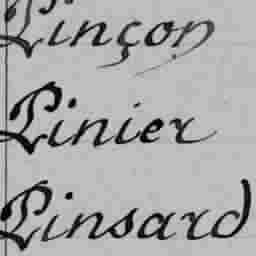 Pinçon
Pinier
Pinsard